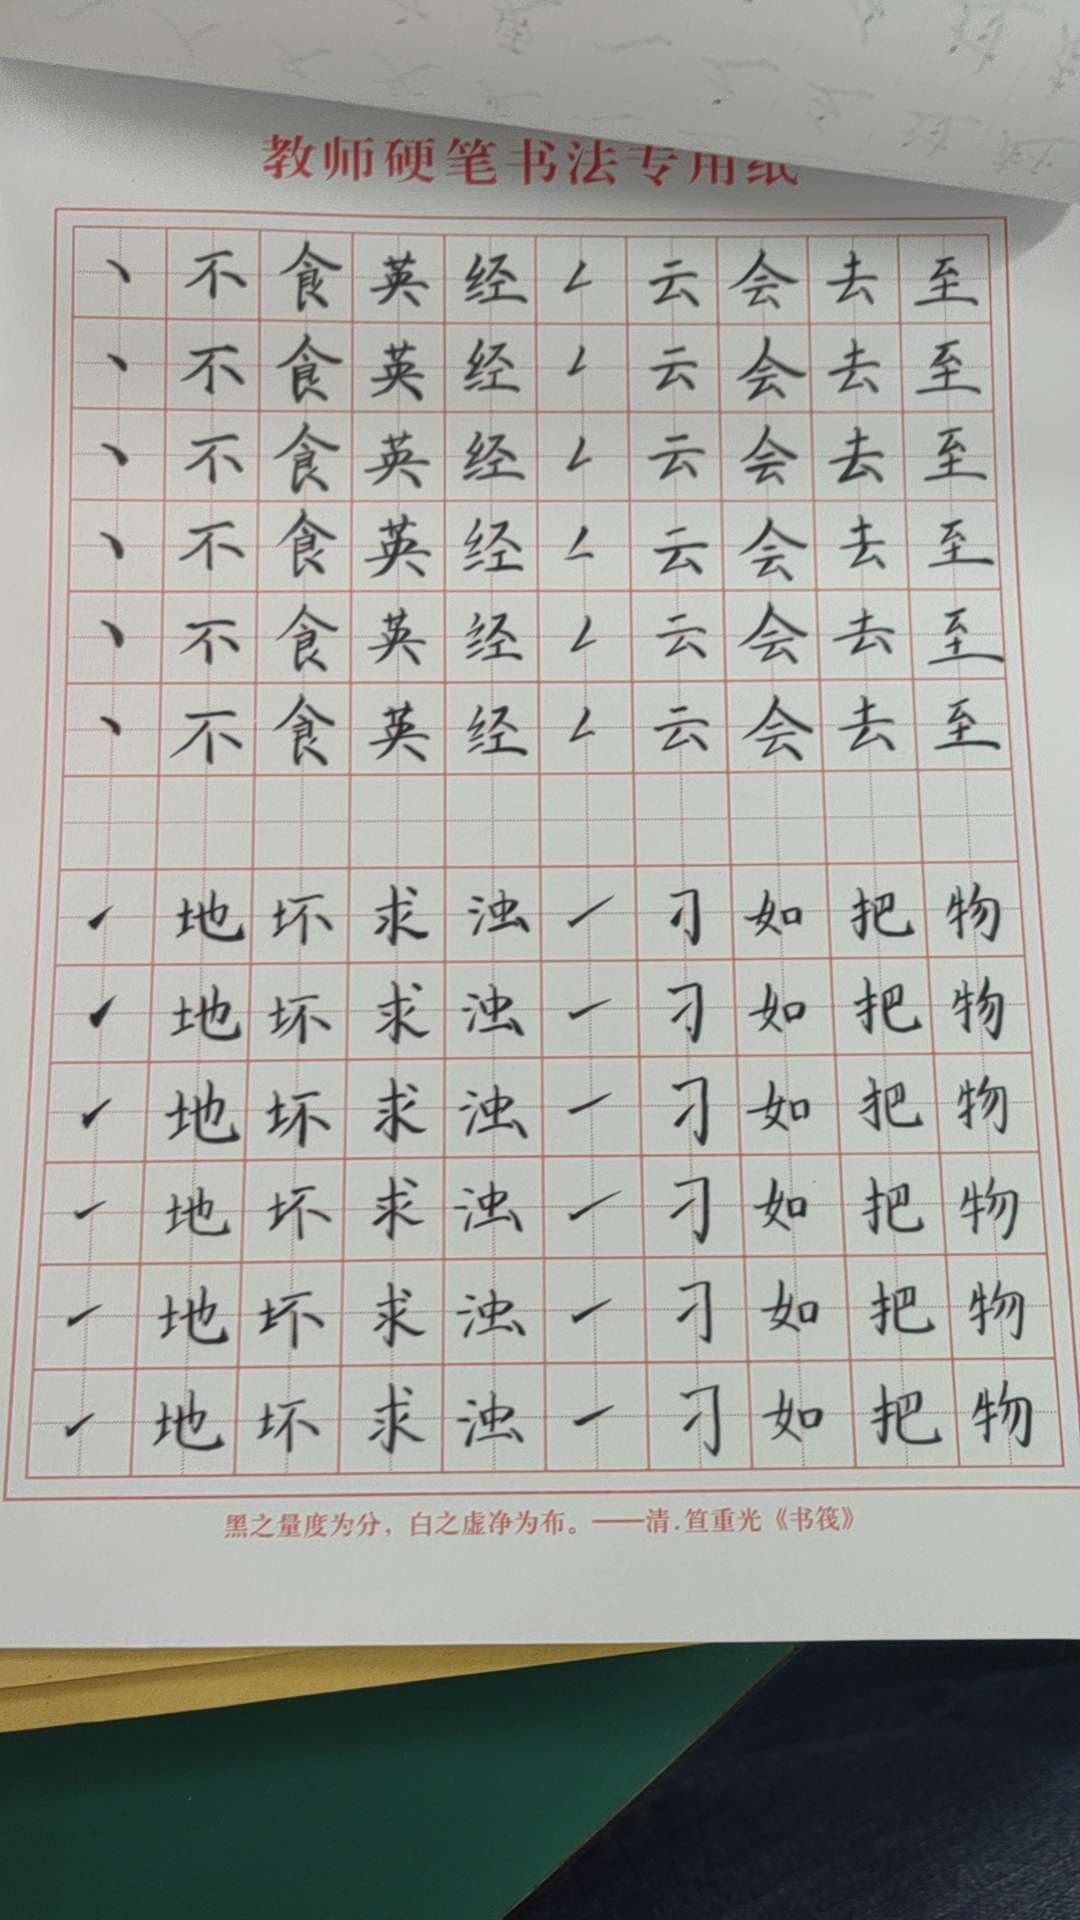 教师硬笔书法专用纸
丶 不 食 英 经 𠃋 云 会 去 至
丶 不 食 英 经 𠃋 云 会 去 至
丶 不 食 英 经 𠃋 云 会 去 至
丶 不 食 英 经 𠃋 云 会 去 至
丶 不 食 英 经 𠃋 云 会 去 至
丶 不 食 英 经 𠃋 云 会 去 至
㇀ 地 坏 求 浊 ㇀ 刁 如 把 物
㇀ 地 坏 求 浊 ㇀ 刁 如 把 物
㇀ 地 坏 求 浊 ㇀ 刁 如 把 物
㇀ 地 坏 求 浊 ㇀ 刁 如 把 物
㇀ 地 坏 求 浊 ㇀ 刁 如 把 物
㇀ 地 坏 求 浊 ㇀ 刁 如 把 物
黑之量度为分，白之虚净为布。——清.笪重光《书筏》